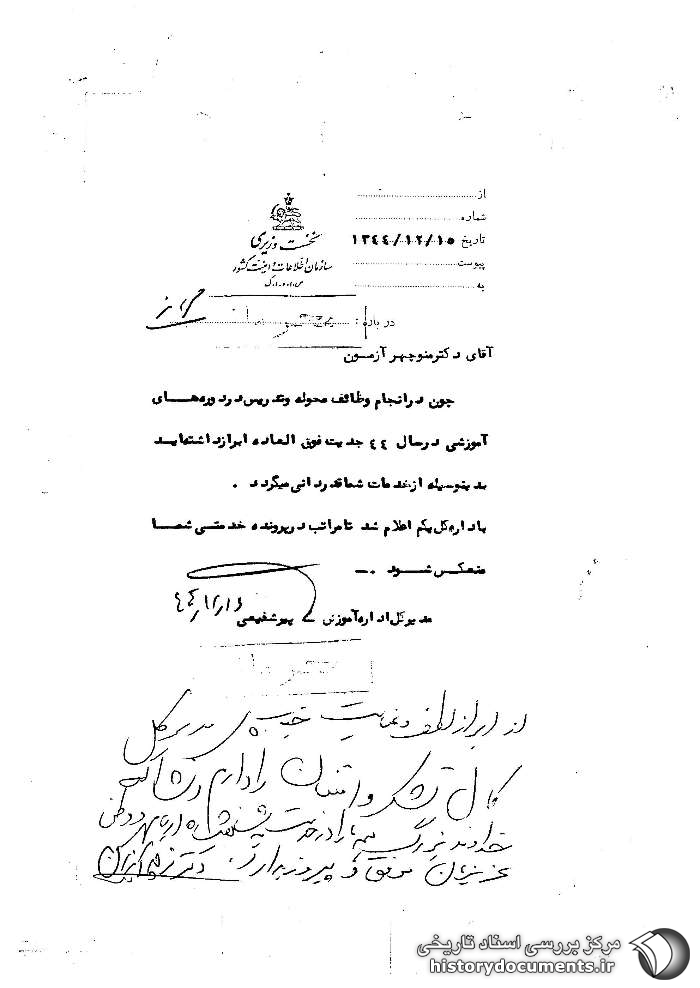 از
شماره
تاریخ ۱۳۴۴/۱۲/۱۵
پیوست
به
نخست وزیری
سازمان اطلاعات و امنیت کشور
س.ا.و.ا.ک
درباره:
آقای دکتر منوچهر آزمون
چون در انجام وظائف محوله و تدریس در دوره‌های
آموزشی در سال ۴۴ جدیت فوق العاده ابراز داشته‌اید
بدینوسیله از خدمات شما قدردانی میگردد .
باداره کل یکم اعلام شد تا مراتب در پرونده خدمتی شما
منعکس شود .-
مدیرکل اداره آموزش
از ابراز لطف و عنایت مدیر کل
کمال تشکر و امتنان را دارم
خداوند بزرگ همه ما را در خدمت شاهنشاه و وطن
عزیزمان موفق و پیروز بدارد. دکتر
مرکز بررسی اسناد تاریخی
historydocuments.ir